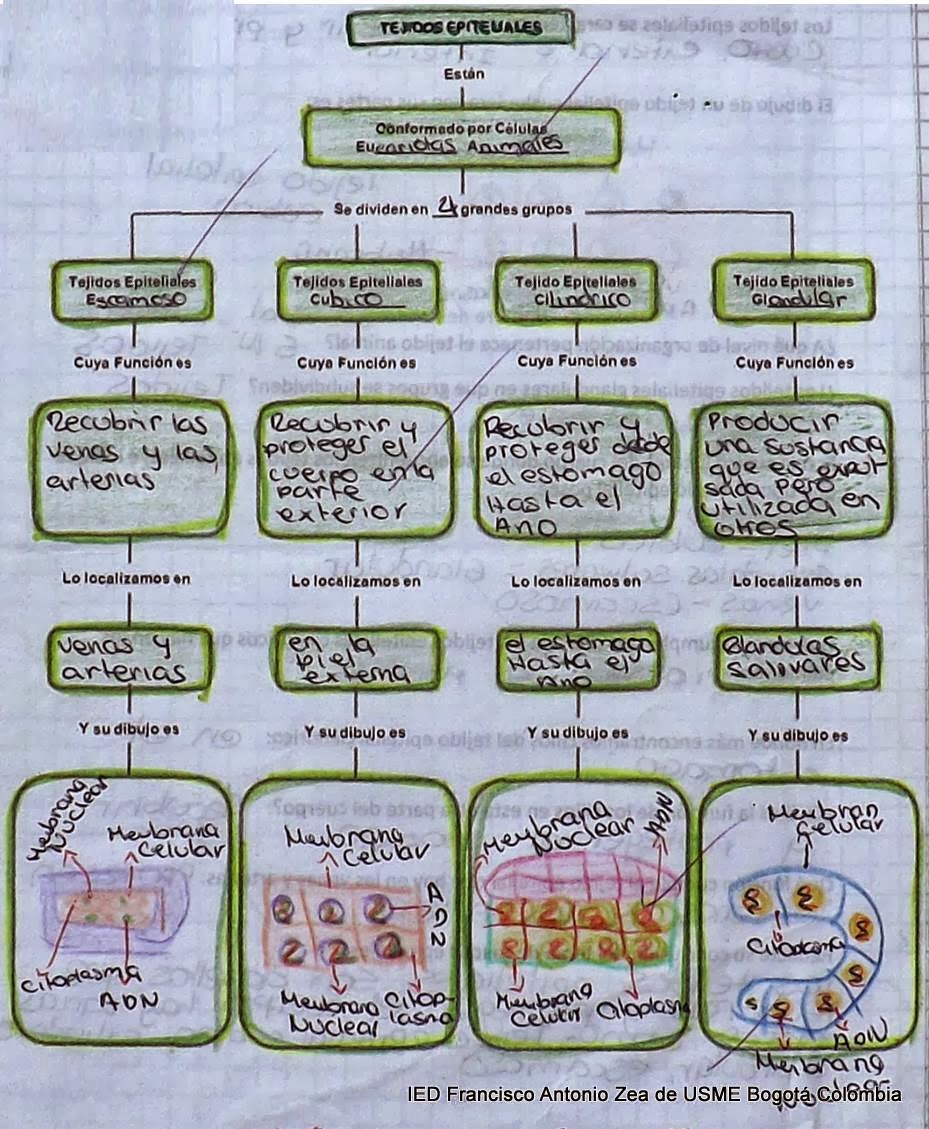 TEJIDOS EPITELIALES
Están
Conformado por Células
Eucariotas Animales
Se dividen en 4 grandes grupos
Tejidos Epiteliales
Escamoso
Tejidos Epiteliales
Cubico
Tejido Epiteliales
Cilindrico
Tejido Epiteliales
Glandular
Cuya Función es
Cuya Función es
Cuya Función es
Cuya Función es
Recubrir las
venas y las
arterias
Recubrir y
proteger el
cuerpo en la
parte
exterior
Recubrir y
proteger desde
el estomago
Hasta el
Ano
Producir
una sustancia
que es expul
sada pero
utilizada en
otros
Lo localizamos en
Lo localizamos en
Lo localizamos en
Lo localizamos en
venas y
arterias
en la
piel
externa
el estomago
Hasta el
Ano
Glandulas
Salivares
Y su dibujo es
Y su dibujo es
Y su dibujo es
Y su dibujo es
Membrana
Nuclear
Membrana
Celular
citoplasma
ADN
Membrana
Celular
ADN
Membrana
Nuclear
Citop-
lasma
Membrana
Nuclear
ADN
Membrana
Celular
Citoplasma
Membran
Celular
Citoplasma
ADN
Membrana
IED Francisco Antonio Zea de USME Bogotá Colombia